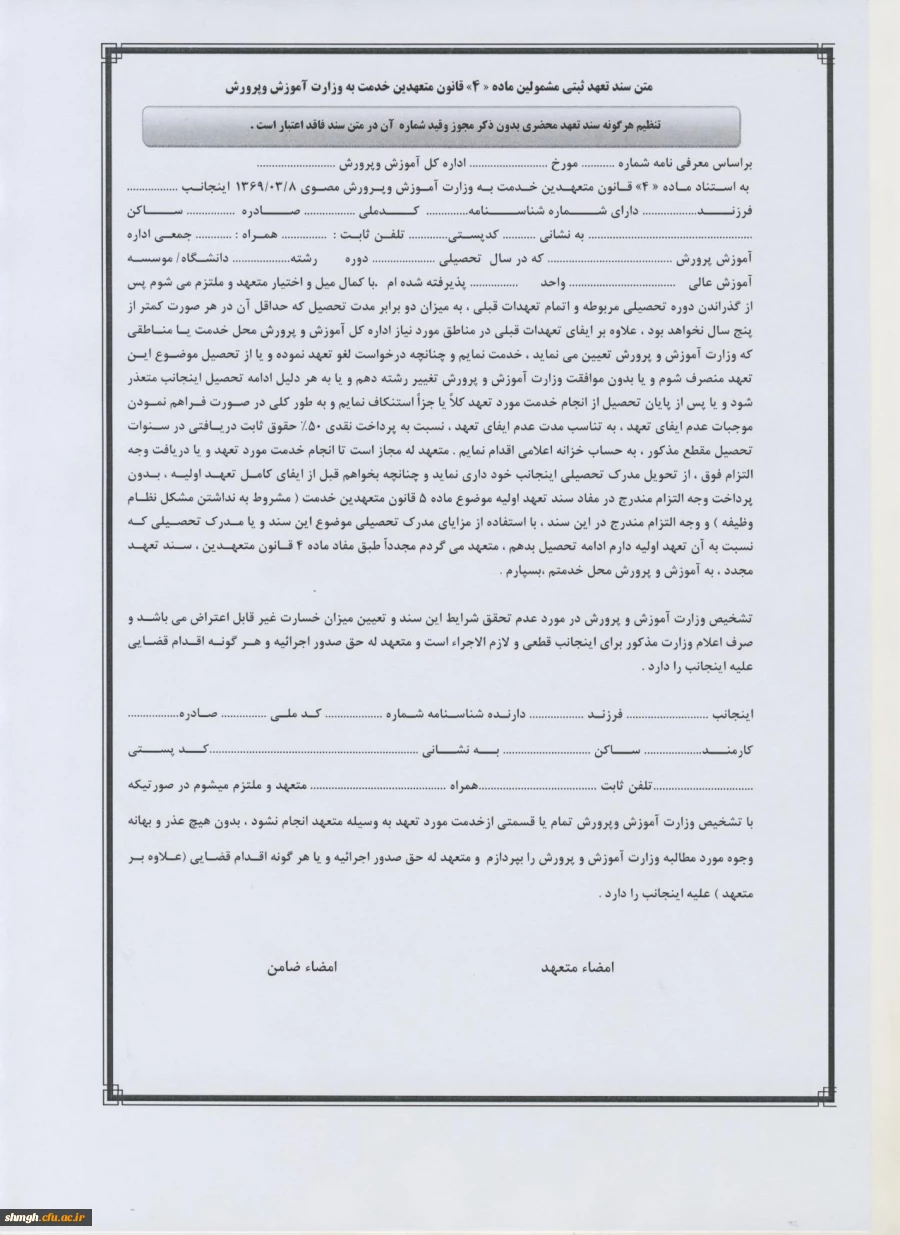 متن سند تعهد ثبتی مشمولین ماده « ۴» قانون متعهدین خدمت به وزارت آموزش وپرورش
تنظیم هرگونه سند تعهد محضری بدون ذکر مجوز وقید شماره آن در متن سند فاقد اعتبار است .
براساس معرفی نامه شماره ........... مورخ .......................... اداره کل آموزش وپرورش ..........................
به استناد ماده « ۴» قانون متعهدین خدمت به وزارت آموزش وپرورش مصوی ۱۳۶۹/۰۳/۸ اینجانب .................
فرزند.................. دارای شماره شناسنامه.............. کدملی ................. صادره ................ ساکن
....................................................... به نشانی ........... کدپستی............. تلفن ثابت : ............... همراه : ............ جمعی اداره
آموزش پرورش .......................................... که در سال تحصیلی ..................... دوره رشته................... دانشگاه/ موسسه
آموزش عالی .................................... واحد ................ پذیرفته شده ام .با کمال میل و اختیار متعهد و ملتزم می شوم پس
از گذراندن دوره تحصیلی مربوطه و اتمام تعهدات قبلی ، به میزان دو برابر مدت تحصیل که حداقل آن در هر صورت کمتر از
پنج سال نخواهد بود ، علاوه بر ایفای تعهدات قبلی در مناطق مورد نیاز اداره کل آموزش و پرورش محل خدمت یا مناطقی
که وزارت آموزش و پرورش تعیین می نماید ، خدمت نمایم و چنانچه درخواست لغو تعهد نموده و یا از تحصیل موضوع این
تعهد منصرف شوم و یا بدون موافقت وزارت آموزش و پرورش تغییر رشته دهم و یا به هر دلیل ادامه تحصیل اینجانب متعذر
شود و یا پس از پایان تحصیل از انجام خدمت مورد تعهد کلاً یا جزأ استنکاف نمایم و به طور کلی در صورت فراهم نمودن
موجبات عدم ایفای تعهد ، به تناسب مدت عدم ایفای تعهد ، نسبت به پرداخت نقدی ۵۰٪ حقوق ثابت دریافتی در سنوات
تحصیل مقطع مذکور ، به حساب خزانه اعلامی اقدام نمایم . متعهد له مجاز است تا انجام خدمت مورد تعهد و یا دریافت وجه
التزام فوق ، از تحویل مدرک تحصیلی اینجانب خود داری نماید و چنانچه بخواهم قبل از ایفای کامل تعهد اولیه ، بدون
پرداخت وجه التزام مندرج در مفاد سند تعهد اولیه موضوع ماده ۵ قانون متعهدین خدمت ( مشروط به نداشتن مشکل نظام
وظیفه ) و وجه التزام مندرج در این سند ، با استفاده از مزایای مدرک تحصیلی موضوع این سند و یا مدرک تحصیلی که
نسبت به آن تعهد اولیه دارم ادامه تحصیل بدهم ، متعهد می گردم مجدداً طبق مفاد ماده ۴ قانون متعهدین ، سند تعهد
مجدد ، به آموزش و پرورش محل خدمتم ،بسپارم .
تشخیص وزارت آموزش و پرورش در مورد عدم تحقق شرایط این سند و تعیین میزان خسارت غیر قابل اعتراض می باشد و
صرف اعلام وزارت مذکور برای اینجانب قطعی و لازم الاجراء است و متعهد له حق صدور اجرائیه و هر گونه اقدام قضایی
علیه اینجانب را دارد .
اینجانب ........................... فرزند .................. دارنده شناسنامه شماره ................... کد ملی ............... صادره.................
کارمند................... ساکن ............................. به نشانی .....................................................................کد پستی
.................................تلفن ثابت .......................................همراه ............................................. متعهد و ملتزم میشوم در صورتیکه
با تشخیص وزارت آموزش وپرورش تمام یا قسمتی ازخدمت مورد تعهد به وسیله متعهد انجام نشود ، بدون هیچ عذر و بهانه
وجوه مورد مطالبه وزارت آموزش و پرورش را بپردازم و متعهد له حق صدور اجرائیه و یا هر گونه اقدام قضایی (علاوه بر
متعهد ) علیه اینجانب را دارد .
امضاء متعهد امضاء ضامن
shmgh.cfu.ac.ir